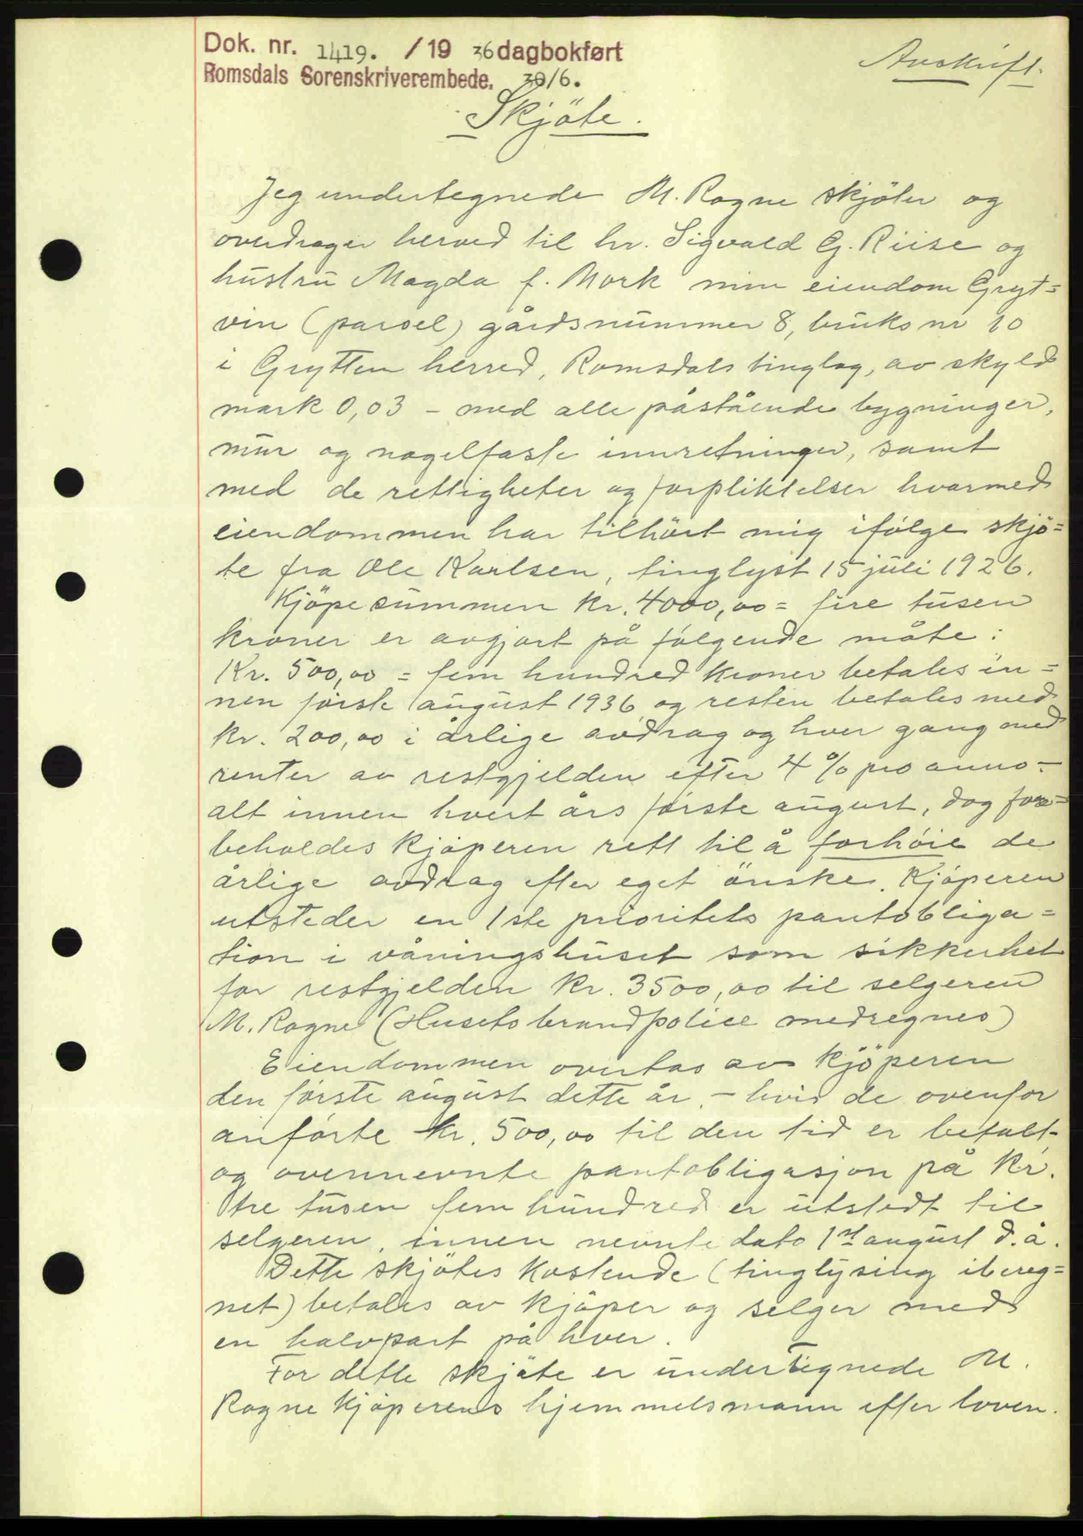 Dok. nr. 1419. / 19 36 dagbokført
Romsdals Sorenskriverembede. 30/6.
Avskrift.
Skjöte.
Jeg undertegnede M. Rogne skjöter og
overdrager herved til hr. Sigvald G. Riise og
hustru Magda f. Mork min eiendom Gryt=
vin (parsel) gårdsnummer 8, bruks nr 10
i Grytten herred, Romsdals tinglag, av skyld
mark 0,03 - med alle påstående bygninger,
mur og nagelfaste innretninger, samt
med de rettigheter og forpliktelser hvormed
eiendommen har tilhört mig ifölge skjö=
te fra Ole Karlsen, tinglyst 15 juli 1926.
Kjöpesummen kr. 4000,00 = fire tusen
kroner er avgjort på fölgende måte:
Kr. 500,00 = fem hundred kroner betales in=
nen förste august 1936 og resten betales med
kr. 200,00 i årlige avdrag og hver gang med
renter av restgjelden efter 4 % pro anno -
alt innen hvert års förste august, dog fore=
beholdes kjöperen rett til å forhöie de
årlige avdrag efter eget önske. Kjöperen
utsteder en 1ste prioritets pantobliga=
tion i våningshuset som sikkerhet
for restgjelden kr. 3500,00 til selgeren
M. Rogne (Husets brandpolice medregnes)
Eiendommen overtas av kjöperen
den förste august dette år. - hvis de ovenfor
anförte kr. 500,00 til den tid er betalt
og ovennevnte pantobligasjon på kr.
tre tusen fem hundred er utstedt til
selgeren, innen nevnte dato 1st august d.å.
Dette skjötes kostende (tinglysing ibereg=
net) betales av kjöper og selger med
en halvpart på hver.
For dette skjöte er undertegnede M.
Rogne kjöperens hjemmelsmann efter loven.